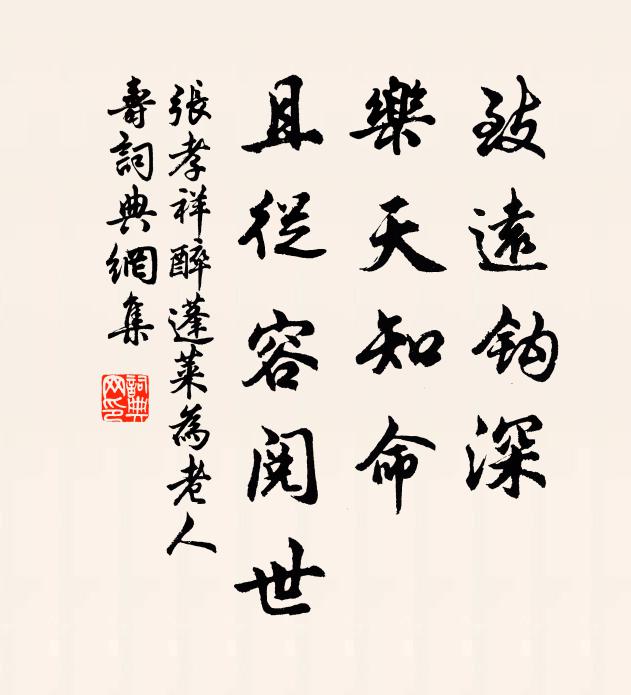 致遠鈎深
樂天知命
且從容閱世
張孝祥醉蓬萊為老人
壽詞典網集
詞典網印